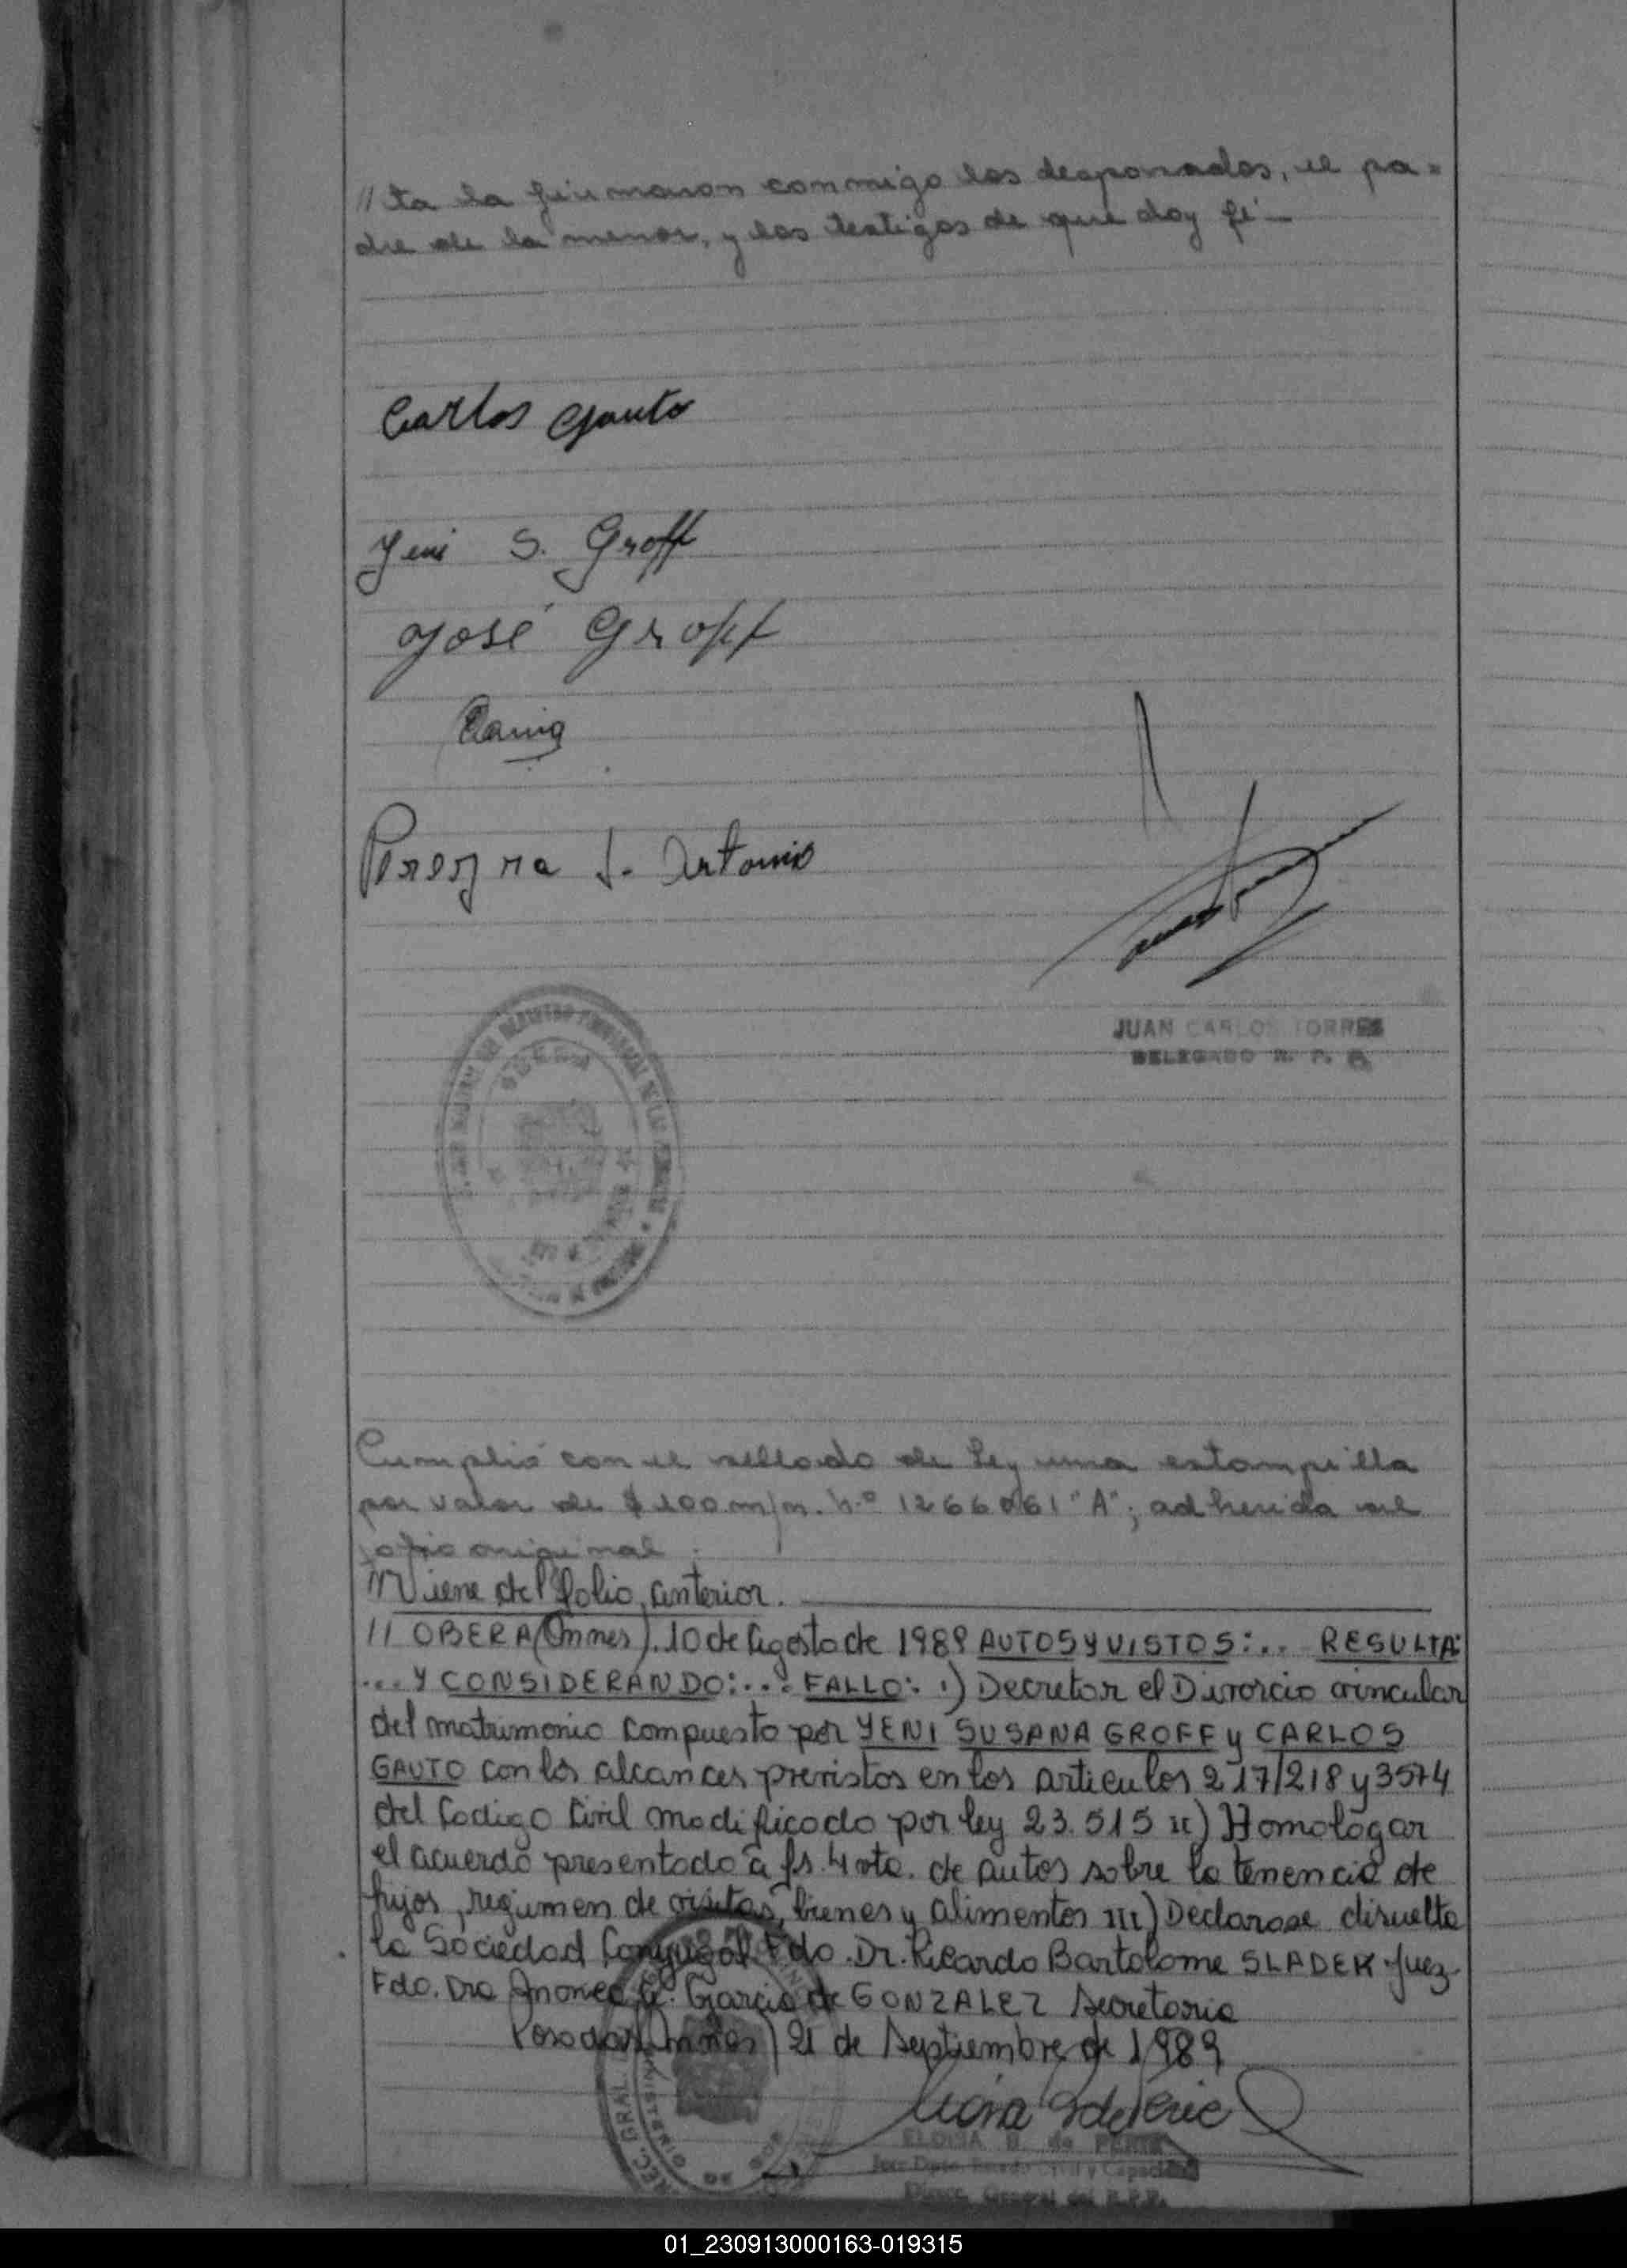 //ta la firmaron conmigo los desposados, el pa=
dre de la menor, y los testigos de que doy fé.—
Carlos Gauto
Yeni S. Groff
José Groff
Pereyra J. Antonio
JUAN CARLOS TORRES
DELEGADO R. P. P.
Cumplió con el sellado de Ley una estampilla
por valor de $ 100 m/n. N.º 1266061 "A"; adherida al
folio original.
///Viene del folio anterior.
// OBERA (Mnes). 10 de Agosto de 1989 AUTOS y VISTOS:... RESULTA:
... Y CONSIDERANDO:... FALLO: I) Decretar el Divorcio vincular
del matrimonio compuesto por YENI SUSANA GROFF y CARLOS
GAUTO con los alcances previstos en los articulos 217/218 y 3574
del Codigo Civil modificado por ley 23.515 II) Homologar
el acuerdo presentado a fs. 4 vta. de autos sobre la tenencia de
hijos, regimen de visitas, bienes y alimentos III) Declarase disuelta
la Sociedad Conyugal Fdo. Dr. Ricardo Bartolome SLADEK Juez
Fdo. Dra G. Garcia de GONZALEZ Secretaria
Posadas (Mnes) 21 de Septiembre de 1989
ELOISA B. de
Jefe Dpto. Estado Civil y Capacidad
Direc. General del R.P.P.
01_230913000163-019315